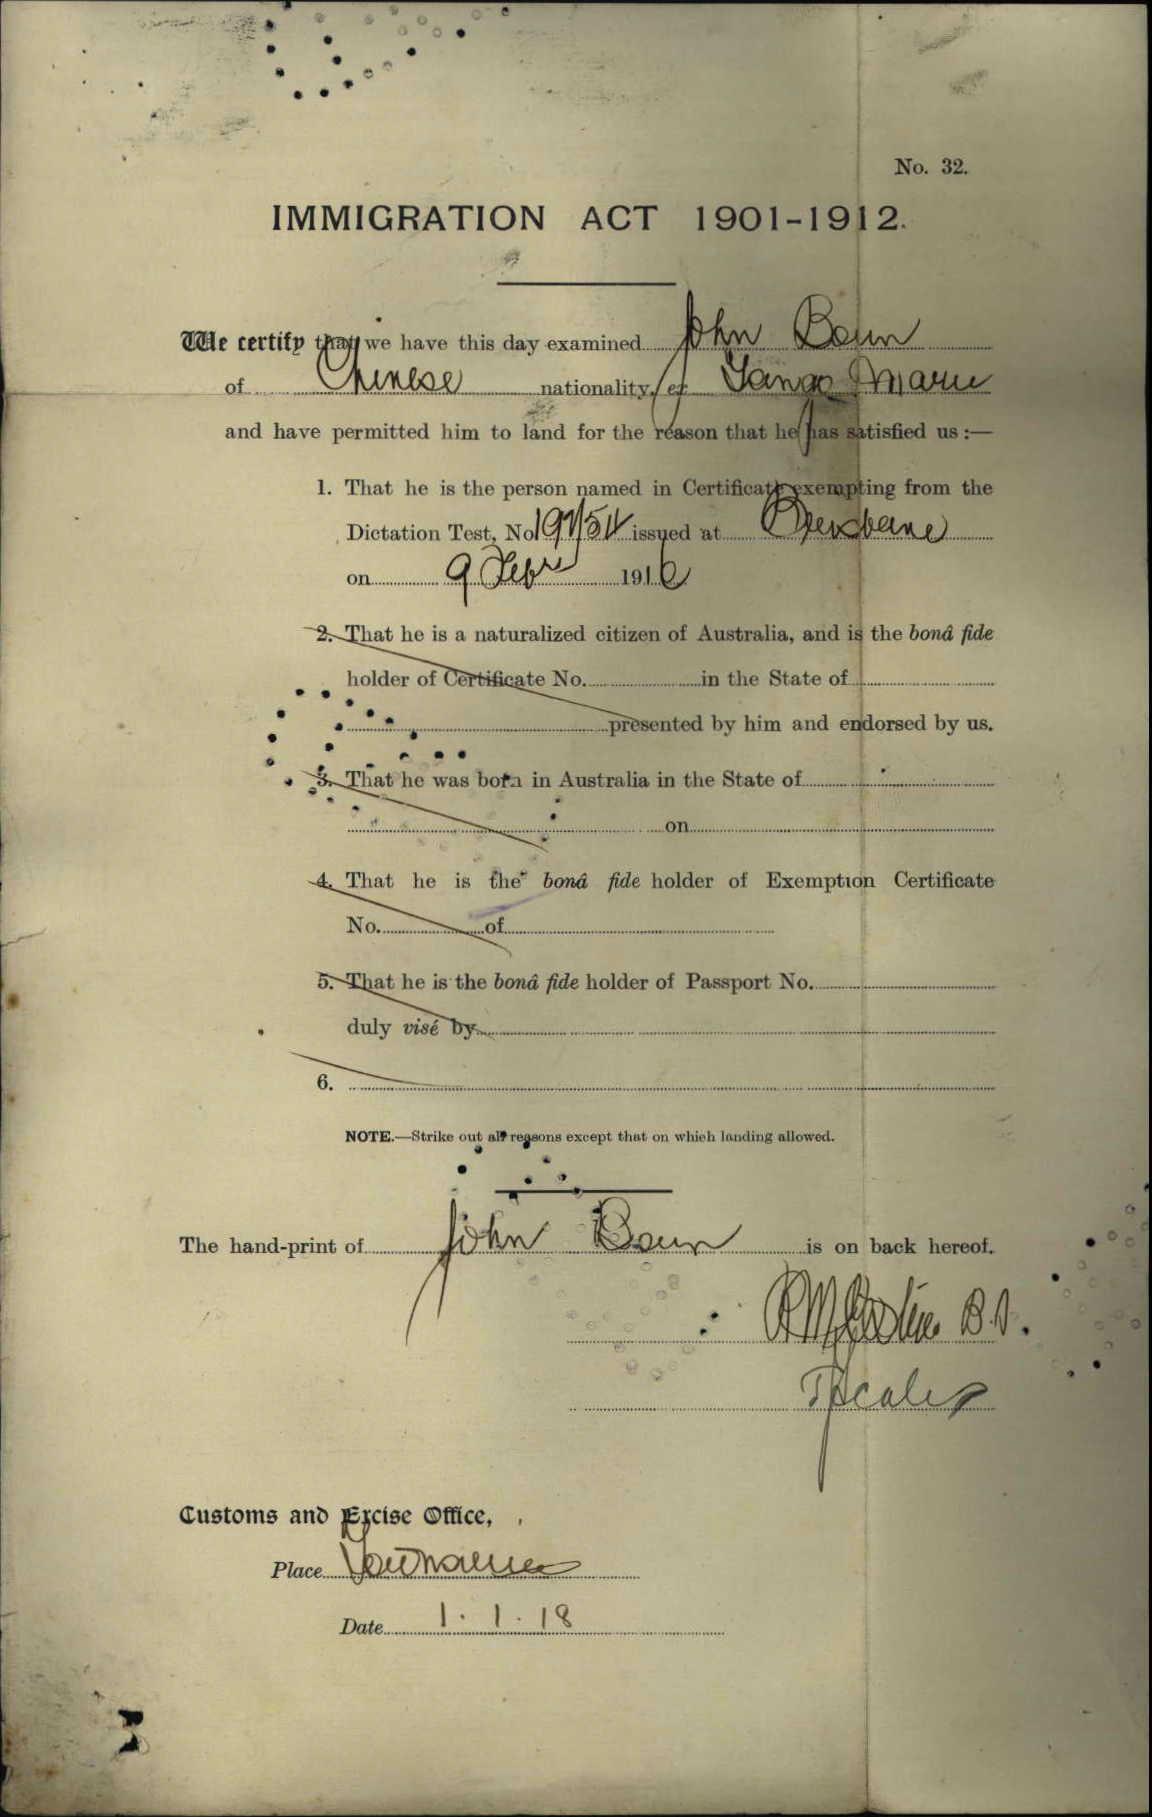 No. 32.
IMMIGRATION ACT 1901-1912.
We certify that we have this day examined John Boun
of Chinese nationality, ex Tango Maru
and have permitted him to land for the reason that he has satisfied us :—
1. That he is the person named in Certificate exempting from the
Dictation Test, No. issued at Brisbane
on 9 Febr 1916
2. That he is a naturalized citizen of Australia, and is the bonâ fide
holder of Certificate No. in the State of
presented by him and endorsed by us.
3. That he was born in Australia in the State of
on
4. That he is the bonâ fide holder of Exemption Certificate
No. of
5. That he is the bonâ fide holder of Passport No.
duly visé by
6.
NOTE.—Strike out all reasons except that on which landing allowed.
The hand-print of John Boun is on back hereof.
Customs and Excise Office,
Place
Date 1.1.18